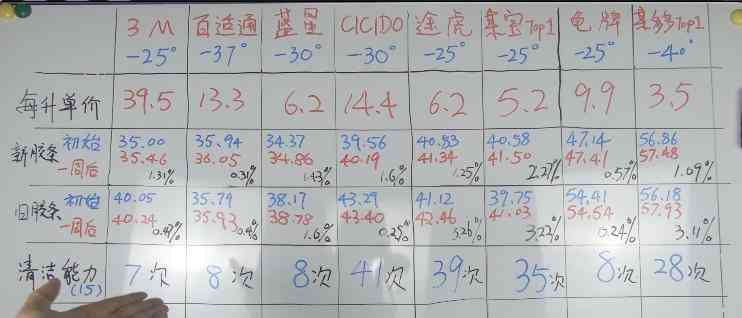 3M 百适通 蓝星 CICIDO 途虎 某宝Top1 龟牌 某多Top1
-25° -37° -30° -30° -25° -25° -25° -40°
每升单价 39.5 13.3 6.2 14.4 6.2 5.2 9.9 3.5
新胶条 初始 35.00 35.94 34.37 39.56 40.83 40.58 47.14 56.86
一周后 35.46 36.05 34.86 40.19 41.34 41.50 47.41 57.48
1.31% 0.31% 1.43% 1.6% 1.25% 2.27% 0.57% 1.09%
旧胶条 初始 40.05 35.79 38.17 43.29 41.12 39.75 54.41 56.18
一周后 40.24 35.93 38.78 43.40 42.46 41.03 54.54 57.93
0.47% 0.4% 1.6% 0.25% 3.26% 3.22% 0.24% 3.11%
清洁能力 7次 8次 8次 41次 39次 35次 8次 28次
(15)